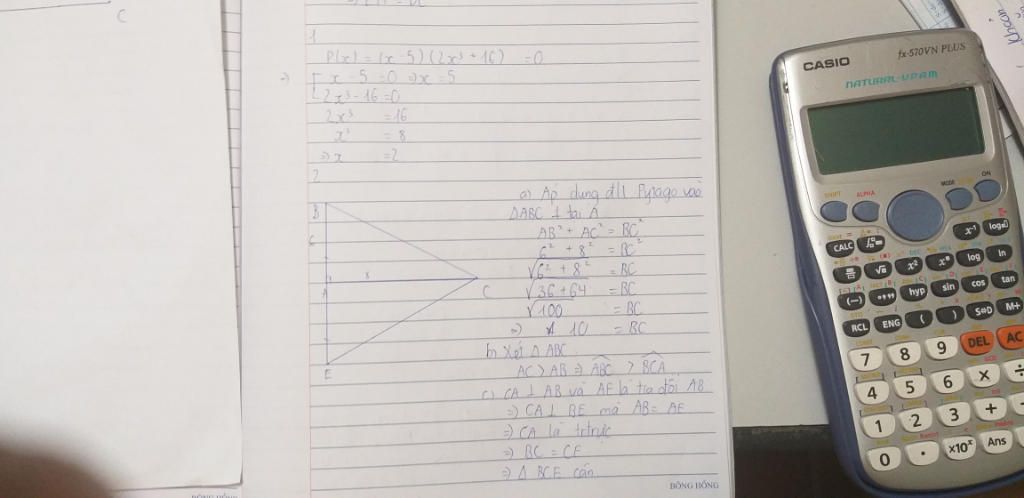 C
1
P(x) = (x-5)(2x³+16) =0
=> [ x-5 =0 => x =5
2x³-16 =0
2x³ =16
x³ = 8
=> x =2
2
B
6
8
A
C
E
a) Áp dụng đ/l Pytago vào
ΔABC ⊥ tại A
AB² + AC² = BC²
6² + 8² = BC²
√6² + 8² = BC
√36+64 = BC
√100 = BC
=> 10 = BC
b) Xét Δ ABC
AC > AB => ABC > BCA
c) CA ⊥ AB và AE là tia đối AB
=> CA ⊥ BE mà AB = AE
=> CA là tr trực
=> BC = CE
=> Δ BCE cân
BÔNG HỒNG
BÔNG HỒNG
Khoản
CASIO
fx-570VN PLUS
NATURAL-V.P.A.M.
SHIFT ALPHA MODE ON
CALC x⁻¹
√ x² log ln
(−) hyp sin cos tan
RCL ENG ( ) S⇔D M+
7 8 9 DEL AC
4 5 6 × ÷
1 2 3 +
0 . ×10ˣ Ans